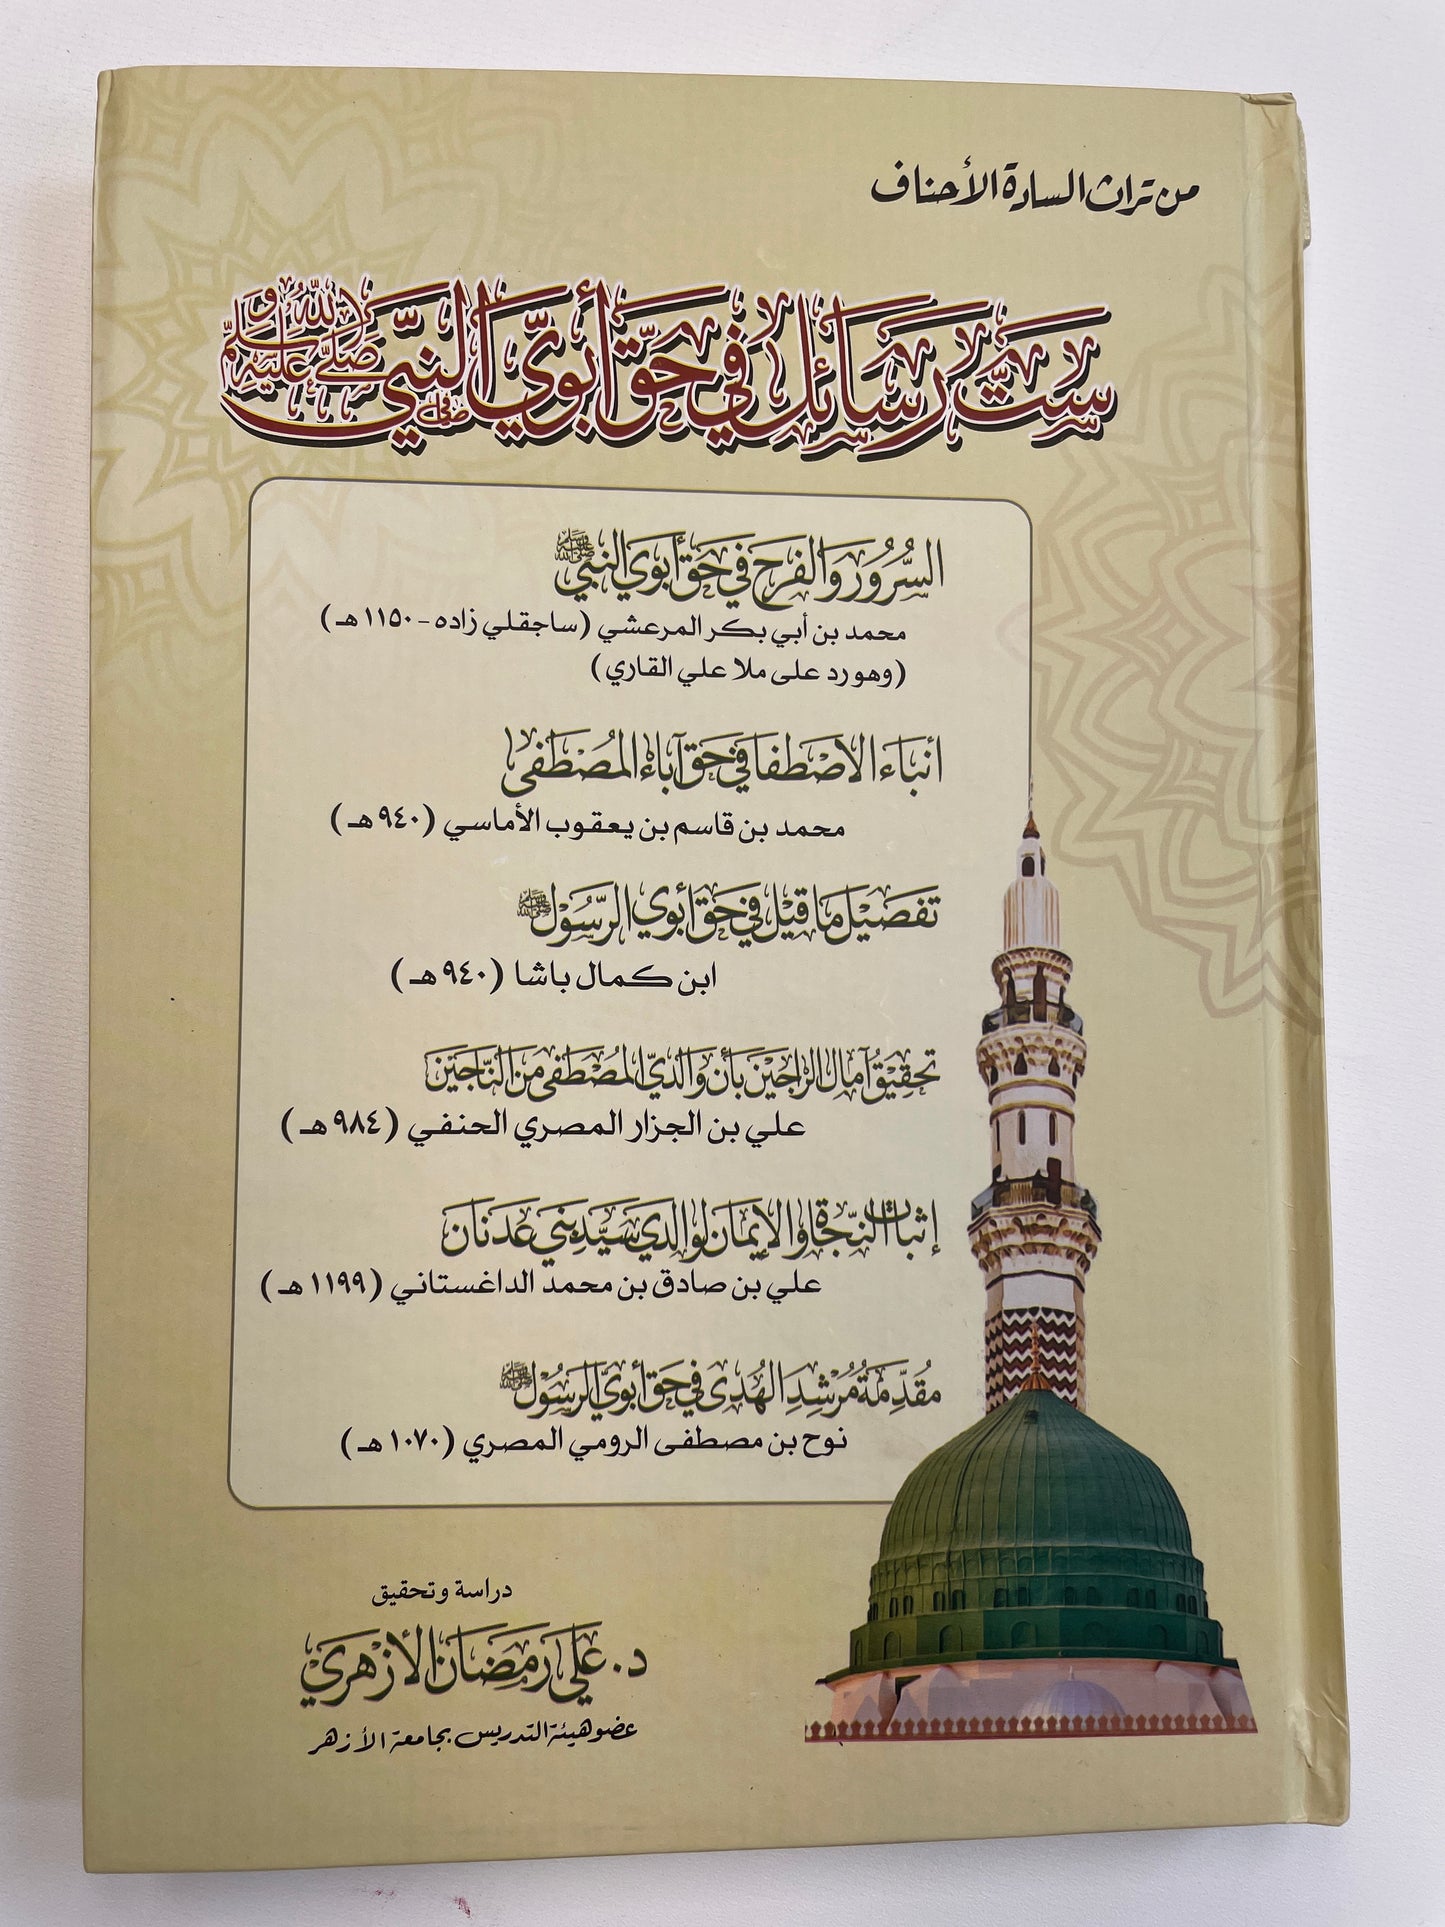 من تراث السادة الأحناف
ستُّ رَسَائل في حَقّ أبويّ النبيّ صَلَّى اللهُ عَلَيْهِ وَسَلَّم
السُّرُور وَالفرح في حَق أبوَي النبي ﷺ
محمد بن أبي بكر المرعشي (ساجقلي زاده - ١١٥٠ هـ)
(وهو رد على ملا علي القاري)
أنباء الاصْطفا في حَق آباء المُصْطَفى
محمد بن قاسم بن يعقوب الأماسي (٩٤٠ هـ)
تفصَيْل مَا قيْل في حَق أبوي الرَّسُوْل ﷺ
ابن كمال باشا (٩٤٠ هـ)
تحقِيْقُ آمال الراجيْن بأن وَالديّ المُصْطَفى مَن النَّاجيْن
علي بن الجزار المصري الحنفي (٩٨٤ هـ)
إثبات النّجَاة وَالإيمَان لوَالدي سَيّد بَني عَدنَان
علي بن صادق بن محمد الداغستاني (١١٩٩ هـ)
مُقدِّمَة مُرْشِدِ الهُدى في حَق أبويّ الرسُوْل ﷺ
نوح بن مصطفى الرومي المصري (١٠٧٠ هـ)
دراسة وتحقيق
د. عَلي رَمضَان الأزهَري
عضو هيئة التدريس بجامعة الأزهر